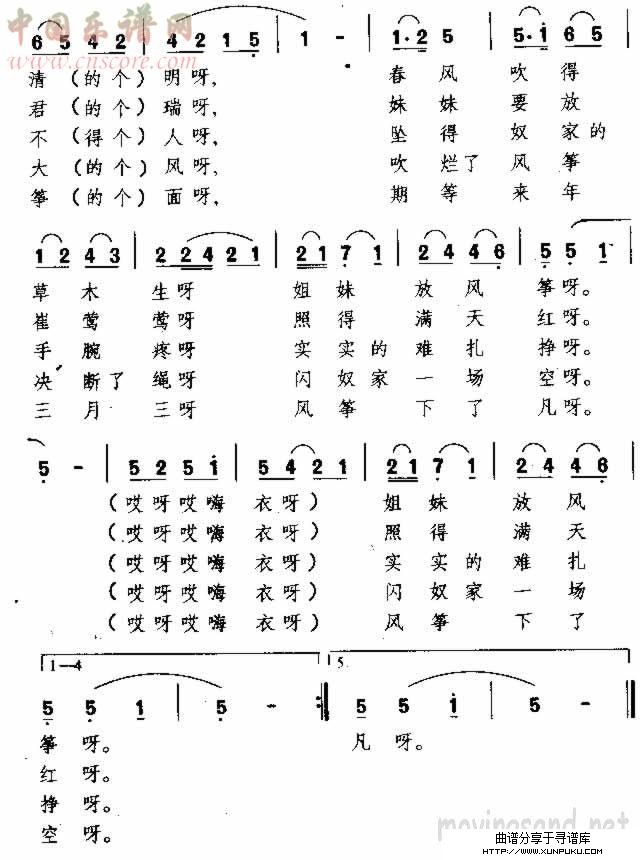 中国乐谱网
www.cnscore.com
6 5 4 2 | 4 2 1 5 | 1 - | 1·2 5 | 5·1 6 5 |
清（的个）明呀， 春风吹得
君（的个）瑞呀， 妹妹要放
不（得个）人呀， 坠得奴家的
大（的个）风呀， 吹烂了风筝
筝（的个）面呀， 期等来年
1 2 4 3 | 2 2 4 2 1 | 2 1 7 1 | 2 4 4 6 | 5 5 1 |
草木生呀 姐妹放风筝呀。
崔莺莺呀 照得满天红呀。
手腕疼呀 实实的难扎挣呀。
决断了绳呀 闪奴家一场空呀。
三月三呀 风筝下了凡呀。
5 - | 5 2 5 1 | 5 4 2 1 | 2 1 7 1 | 2 4 4 6 |
（哎呀哎嗨衣呀）姐妹放风
（哎呀哎嗨衣呀）照得满天
（哎呀哎嗨衣呀）实实的难扎
（哎呀哎嗨衣呀）闪奴家一场
（哎呀哎嗨衣呀）风筝下了
1—4 5.
5 5 1 | 5 - :| 5 5 1 | 5 - ‖
筝呀。 凡呀。
红呀。
挣呀。
空呀。
movingsand.net
曲谱分享于寻谱库
HTTP://WWW.XUNPUKU.COM